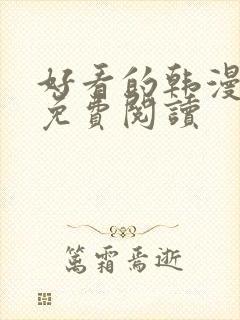 好看的韩漫
免費閱讀
篤霜焉逝